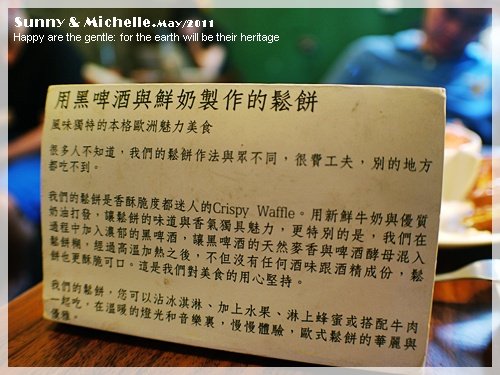 Sunny & Michelle.May/2011
Happy are the gentle: for the earth will be their heritage
用黑啤酒與鮮奶製作的鬆餅
風味獨特的本格歐洲魅力美食
很多人不知道，我們的鬆餅作法與眾不同，很費工夫，別的地方
都吃不到。
我們的鬆餅是香酥脆度都迷人的Crispy Waffle。用新鮮牛奶與優質
奶油打發，讓鬆餅的味道與香氣獨具魅力，更特別的是，我們在
過程中加入濃郁的黑啤酒，讓黑啤酒的天然麥香與啤酒酵母混入
鬆餅糊，經過高溫加熱之後，不但沒有任何酒味跟酒精成份，鬆
餅也更酥脆可口。這是我們對美食的用心堅持。
我們的鬆餅，您可以沾冰淇淋、加上水果、淋上蜂蜜或搭配牛肉
一起吃，在溫暖的燈光和音樂裏，慢慢體驗，歐式鬆餅的華麗與
優雅。